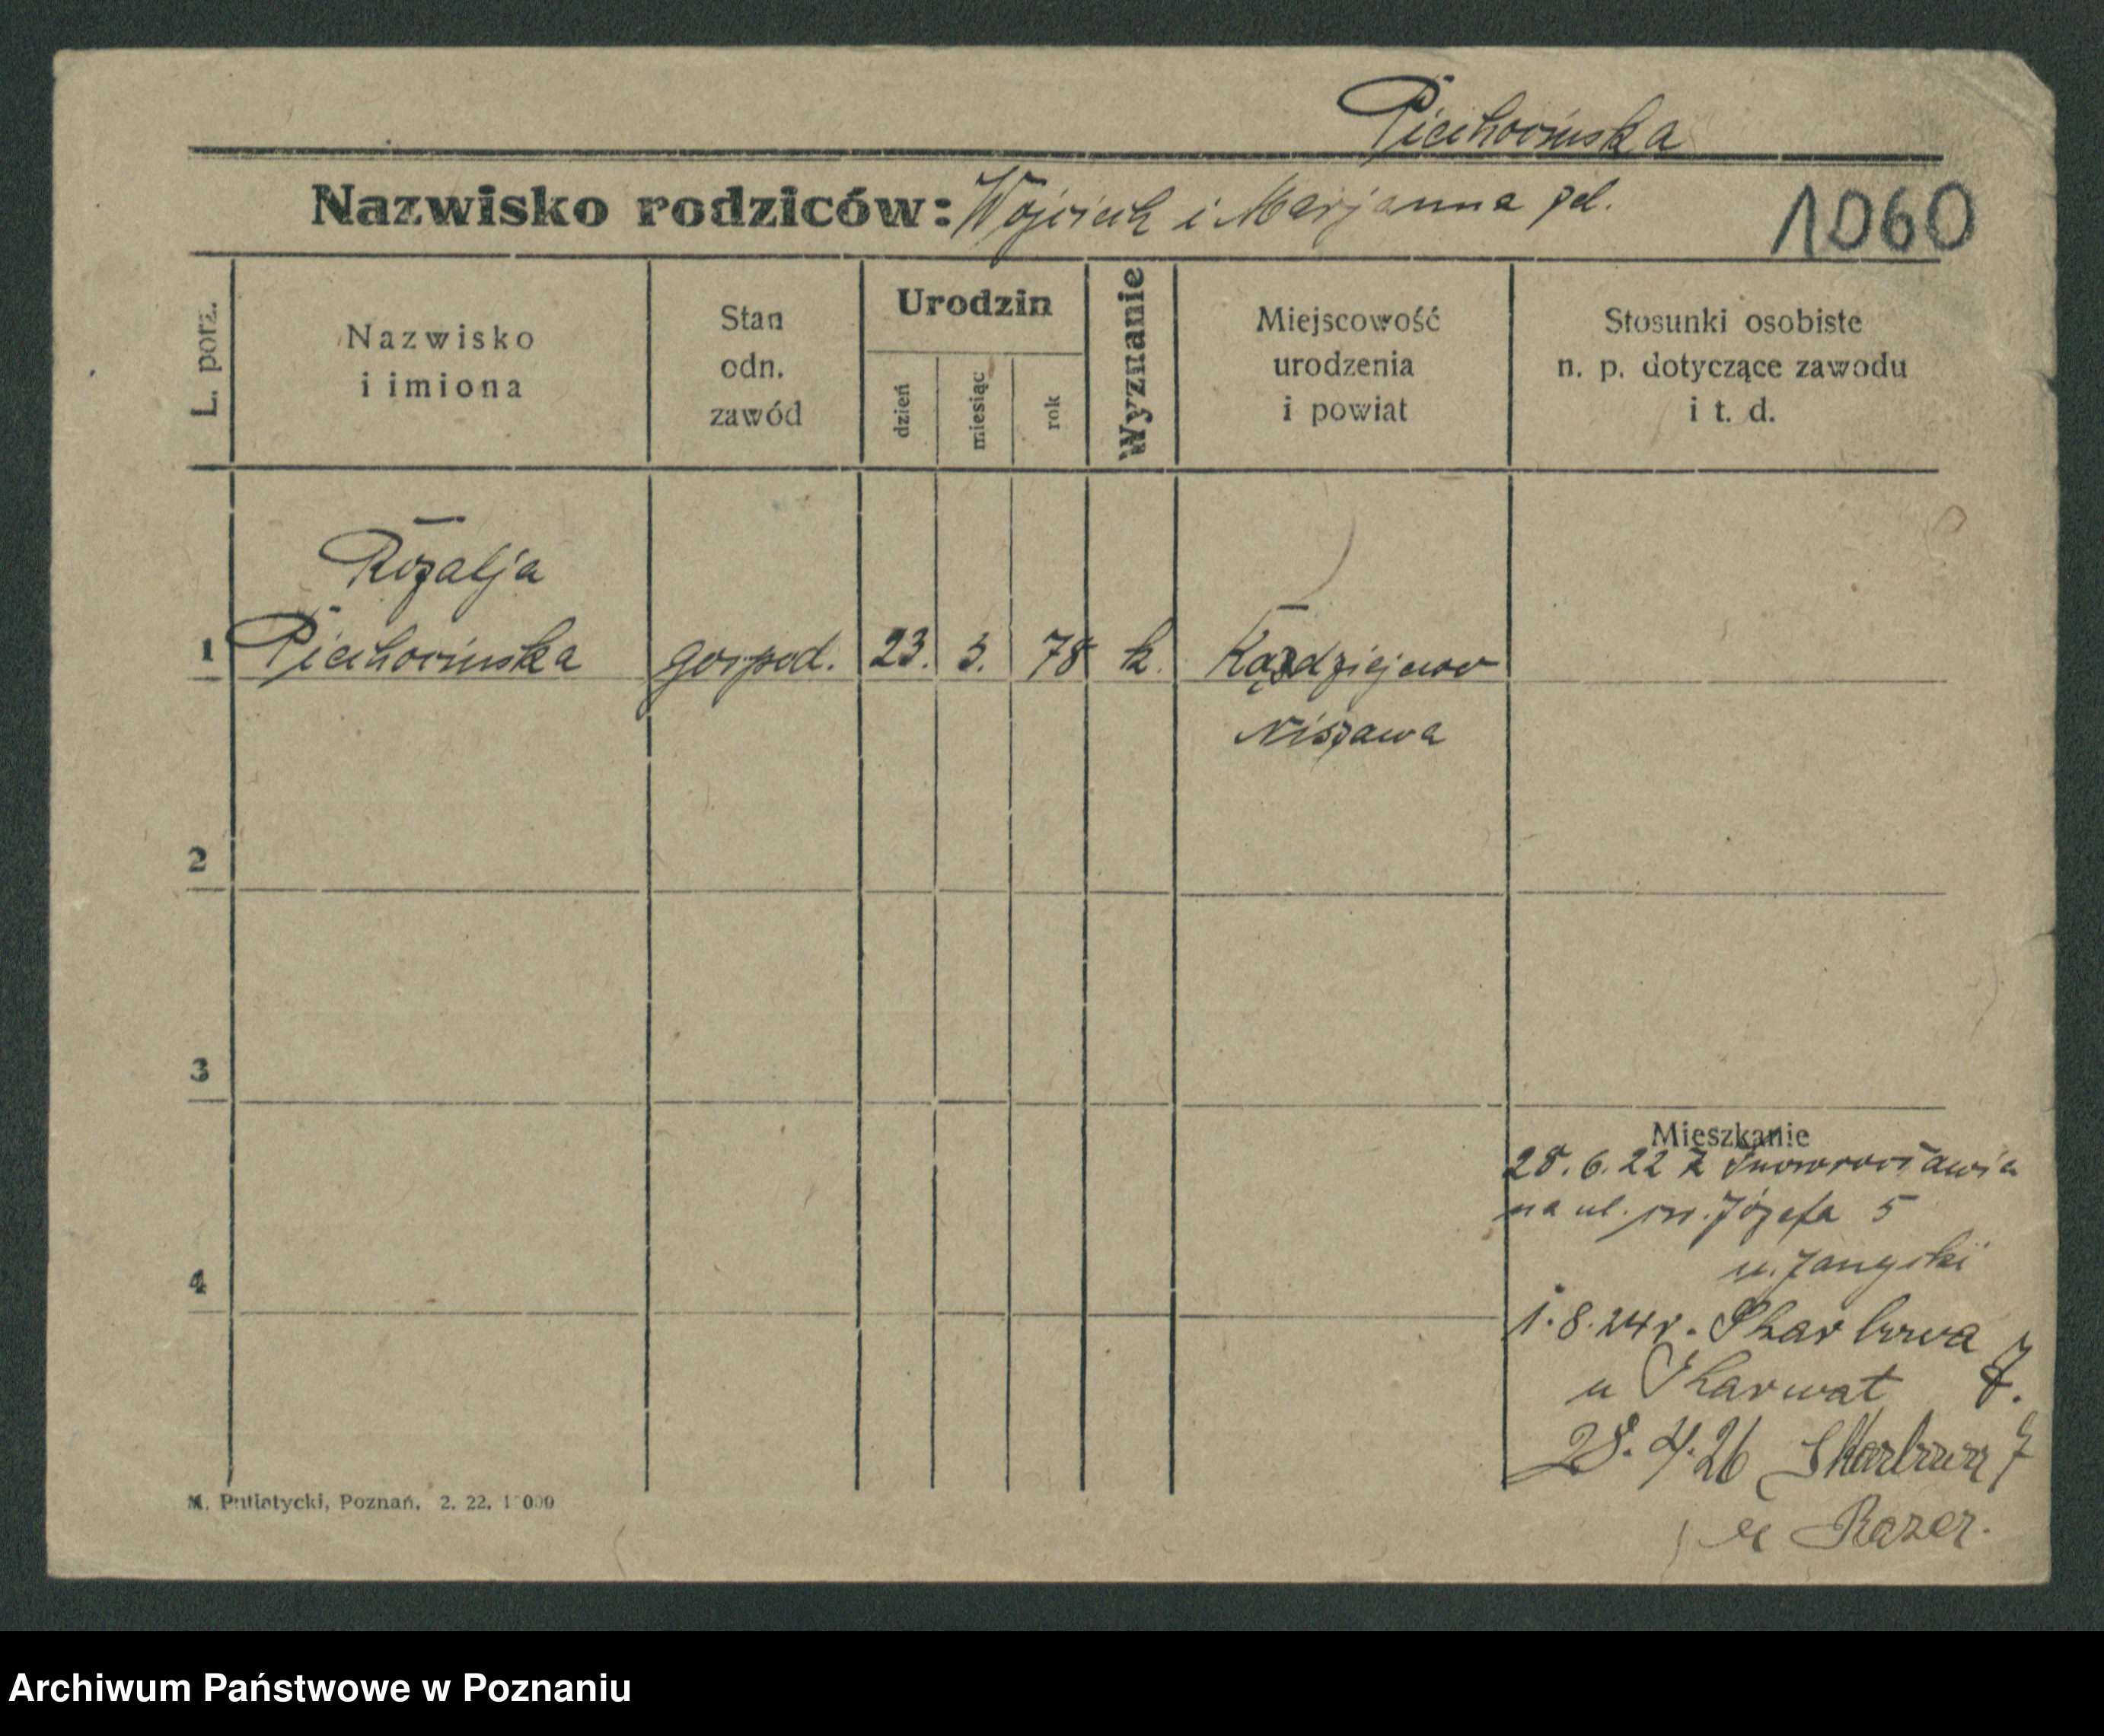 Piechocińska
Nazwisko rodziców: Wojciech i Marjanna zd.
1060
L. porz.
Nazwisko
i imiona
Stan
odn.
zawód
Urodzin
dzień
miesiąc
rok
Wyznanie
Miejscowość
urodzenia
i powiat
Stosunki osobiste
n. p. dotyczące zawodu
i t. d.
Rozalja
1 Piechocińska gospod. 23. 5. 78 k.
Niszawa
2
3
Mieszkanie
28. 6. 22 z Inowrocławia
na ul. św. Józefa 5
4
1. 8. 24 r. Skarbowa 7.
u Skarwat
28. 4. 26 Skarbowa 7
u
M. Putiatycki, Poznań. 2. 22.
Archiwum Państwowe w Poznaniu